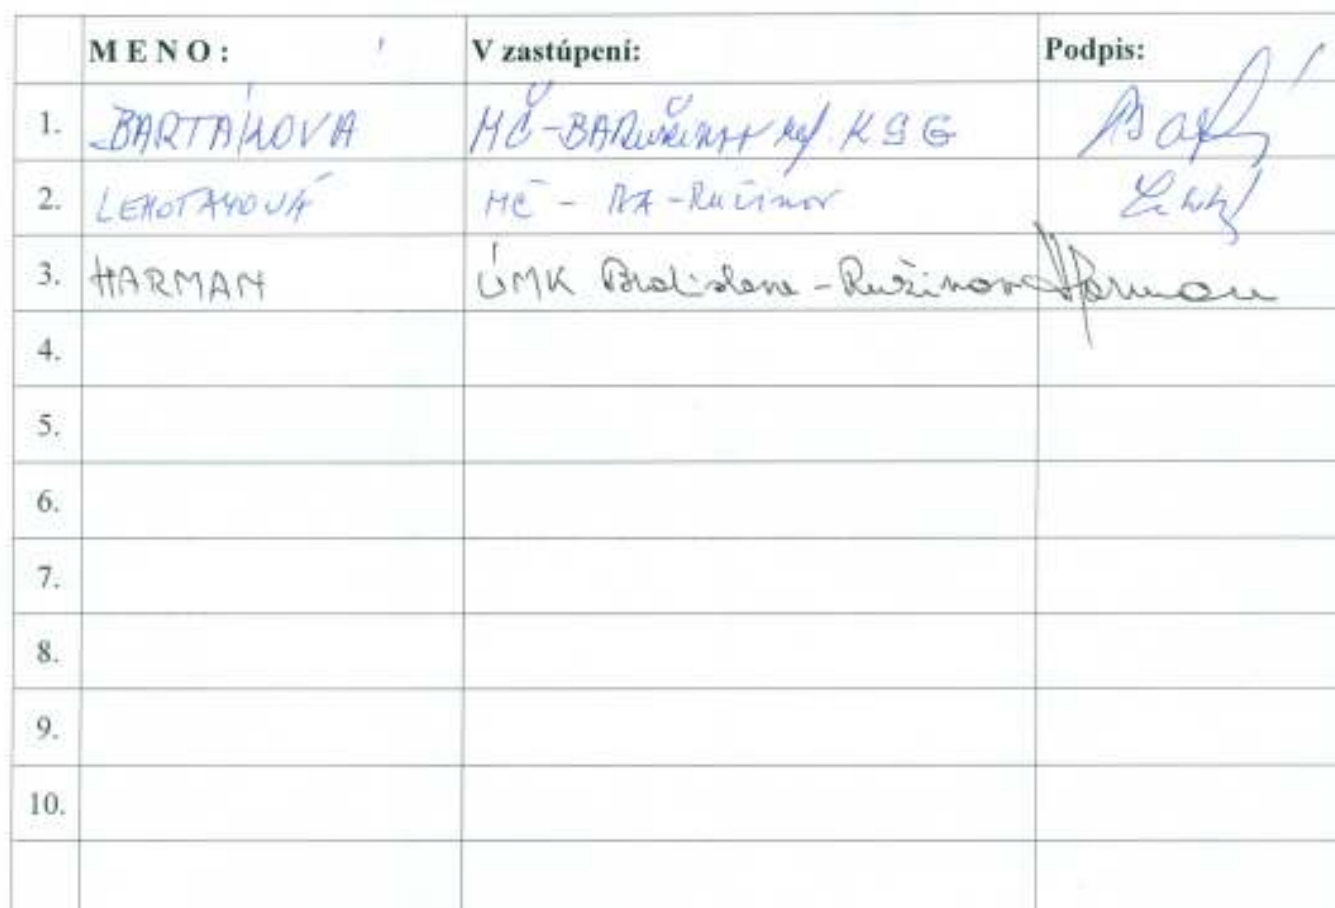 MENO: V zastúpení: Podpis:
1. BARTÁKOVÁ MČ-BA RUŽINOV ref. KSG
2. LEHOTAYOVÁ MČ - BA - Ružinov
3. HARMAN ÚMK Bratislava - Ružinov Harman
4.
5.
6.
7.
8.
9.
10.